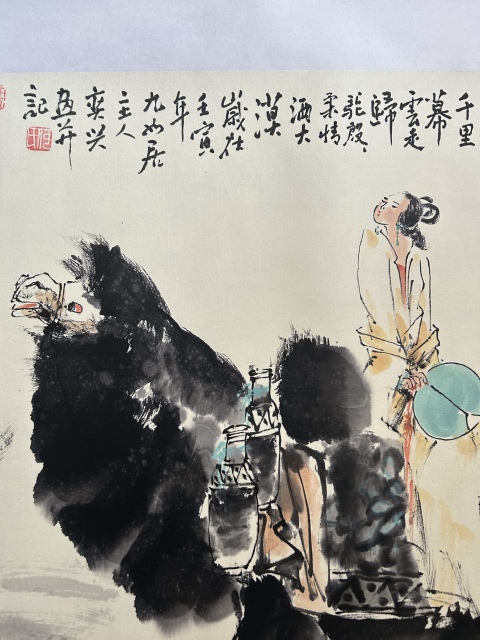 千里
幕雲走
歸
駝殷、
柔情
洒大
漠
歲在
壬寅
年
九如居
主人
奕兴
画并
記